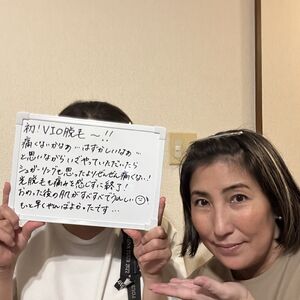 初！VIO脱毛〜！！
痛くないかなぁ…はずかしいなぁ…
と思いながらいざやっていただいたら
シュガーリングも思ったよりぜんぜん痛くない！
光脱毛も痛みを感じずに終了！
おわった後の肌がすべすべでうれしい
もっと早くやればよかったです…